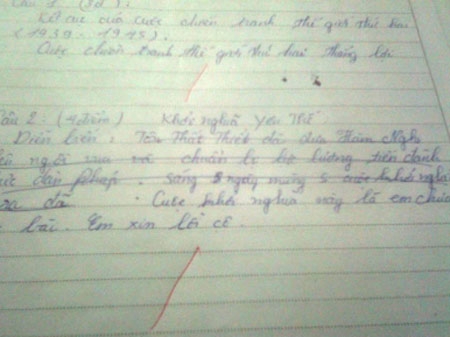 Câu 1. (3đ):
Kết cục của cuộc chiến tranh thế giới thứ hai
(1939 - 1945).
Cuộc chiến tranh thế giới thứ hai thắng lợi
Câu 2: (4 điểm) Khởi nghĩa Yên Thế
Diễn biến: Tôn Thất Thiết đã đưa Hàm Nghi
ngôi vua và chuẩn bị lực lượng tiến đánh
thực dân Pháp. Sáng ngày mùng 5 cuộc khởi nghĩa
ra đã. Cuộc khởi nghĩa này là em chưa
bài. Em xin lỗi cô.